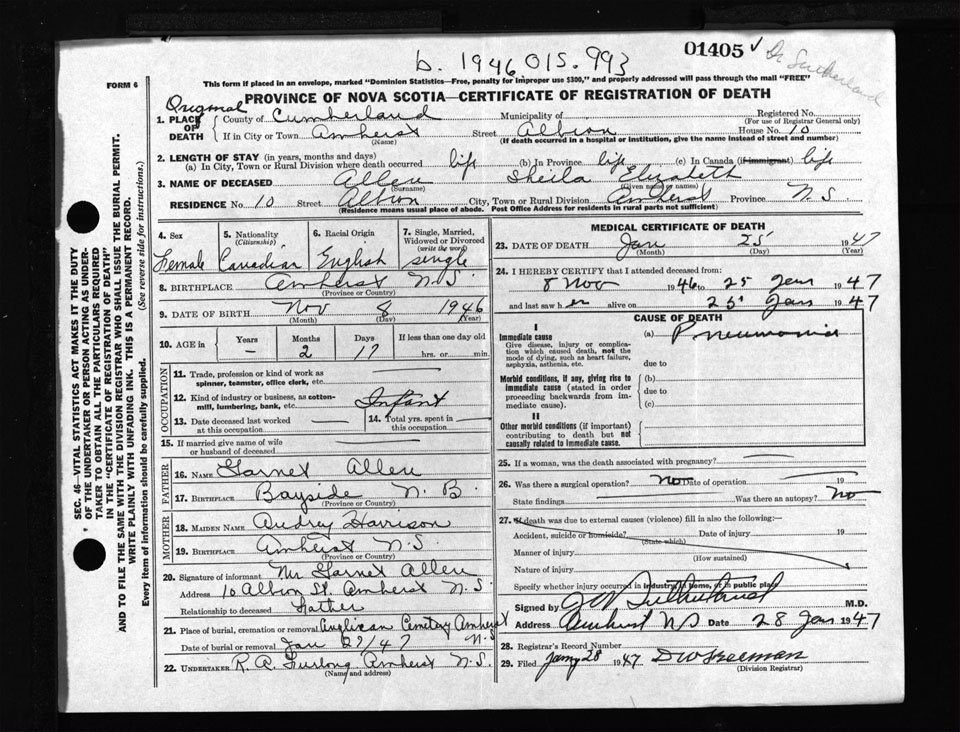 b. 1946 015.993
01405 ✓ Dr Sutherland
FORM 6
This form if placed in an envelope, marked "Dominion Statistics—Free, penalty for improper use $300," and properly addressed will pass through the mail "FREE"
PROVINCE OF NOVA SCOTIA—CERTIFICATE OF REGISTRATION OF DEATH
Original
1. PLACE OF DEATH { County of Cumberland Municipality of Registered No.
(For use of Registrar General only)
If in City or Town Amherst Street Albion House No. 10
(Name) (If death occurred in a hospital or institution, give the name instead of street and number)
2. LENGTH OF STAY (in years, months and days)
(a) In City, Town or Rural Division where death occurred life (b) In Province life (c) In Canada (if immigrant) life
3. NAME OF DECEASED Allen Sheila Elizabeth
(Surname) (Given name or names)
RESIDENCE No. 10 Street Albion City, Town or Rural Division Amherst Province N.S.
(Residence means usual place of abode. Post Office Address for residents in rural parts not sufficient)
4. Sex 5. Nationality (Citizenship) 6. Racial Origin 7. Single, Married, Widowed or Divorced (write the word)
Female Canadian English single
8. BIRTHPLACE Amherst N.S.
(Province or Country)
9. DATE OF BIRTH Nov 8 1946
(Month) (Day) (Year)
10. AGE in { Years Months Days If less than one day old
– 2 17 hrs. or min.
OCCUPATION
11. Trade, profession or kind of work as spinner, teamster, office clerk, etc.
12. Kind of industry or business, as cotton-mill, lumbering, bank, etc. Infant
13. Date deceased last worked at this occupation 14. Total yrs. spent in this occupation
15. If married give name of wife or husband of deceased
FATHER
16. NAME Garnet Allen
17. BIRTHPLACE Bayside N.B.
(Province or Country)
MOTHER
18. MAIDEN NAME Audrey Harrison
19. BIRTHPLACE Amherst N.S.
(Province or Country)
20. Signature of informant Mr Garnet Allen
Address 10 Albion St. Amherst N.S.
Relationship to deceased Father
21. Place of burial, cremation or removal Anglican Cemetery Amherst N.S.
Date of burial or removal Jan 27/47
22. UNDERTAKER R.A. Furlong Amherst N.S.
(Name and address)
MEDICAL CERTIFICATE OF DEATH
23. DATE OF DEATH Jan 25 1947
(Month) (Day) (Year)
24. I HEREBY CERTIFY that I attended deceased from:
8 Nov 1946 to 25 Jan 1947
and last saw her alive on 25 Jan 1947
CAUSE OF DEATH
I
Immediate cause (a) Pneumonia
Give disease, injury or complication which caused death, not the mode of dying, such as heart failure, asphyxia, asthenia, etc.
due to
Morbid conditions, if any, giving rise to immediate cause (stated in order proceeding backwards from immediate cause).
(b)
due to
(c)
II
Other morbid conditions (if important) contributing to death but not causally related to immediate cause.
25. If a woman, was the death associated with pregnancy?
26. Was there a surgical operation? No Date of operation 19
State findings Was there an autopsy? No
27. If death was due to external causes (violence) fill in also the following:—
Accident, suicide or homicide? Date of injury 19
(State which)
Manner of injury
(How sustained)
Nature of injury
Specify whether injury occurred in industry, in home, or in public place
Signed by Sutherland M.D.
Address Amherst NS Date 28 Jan 1947
28. Registrar's Record Number
29. Filed Jany 28 1947 D W Freeman
(Division Registrar)
SEC. 46—VITAL STATISTICS ACT MAKES IT THE DUTY OF THE UNDERTAKER OR PERSON ACTING AS UNDERTAKER TO OBTAIN ALL THE PARTICULARS REQUIRED IN THE "CERTIFICATE OF REGISTRATION OF DEATH" AND TO FILE THE SAME WITH THE DIVISION REGISTRAR WHO SHALL ISSUE THE BURIAL PERMIT.
WRITE PLAINLY WITH UNFADING INK. THIS IS A PERMANENT RECORD.
Every item of information should be carefully supplied. (See reverse side for instructions.)